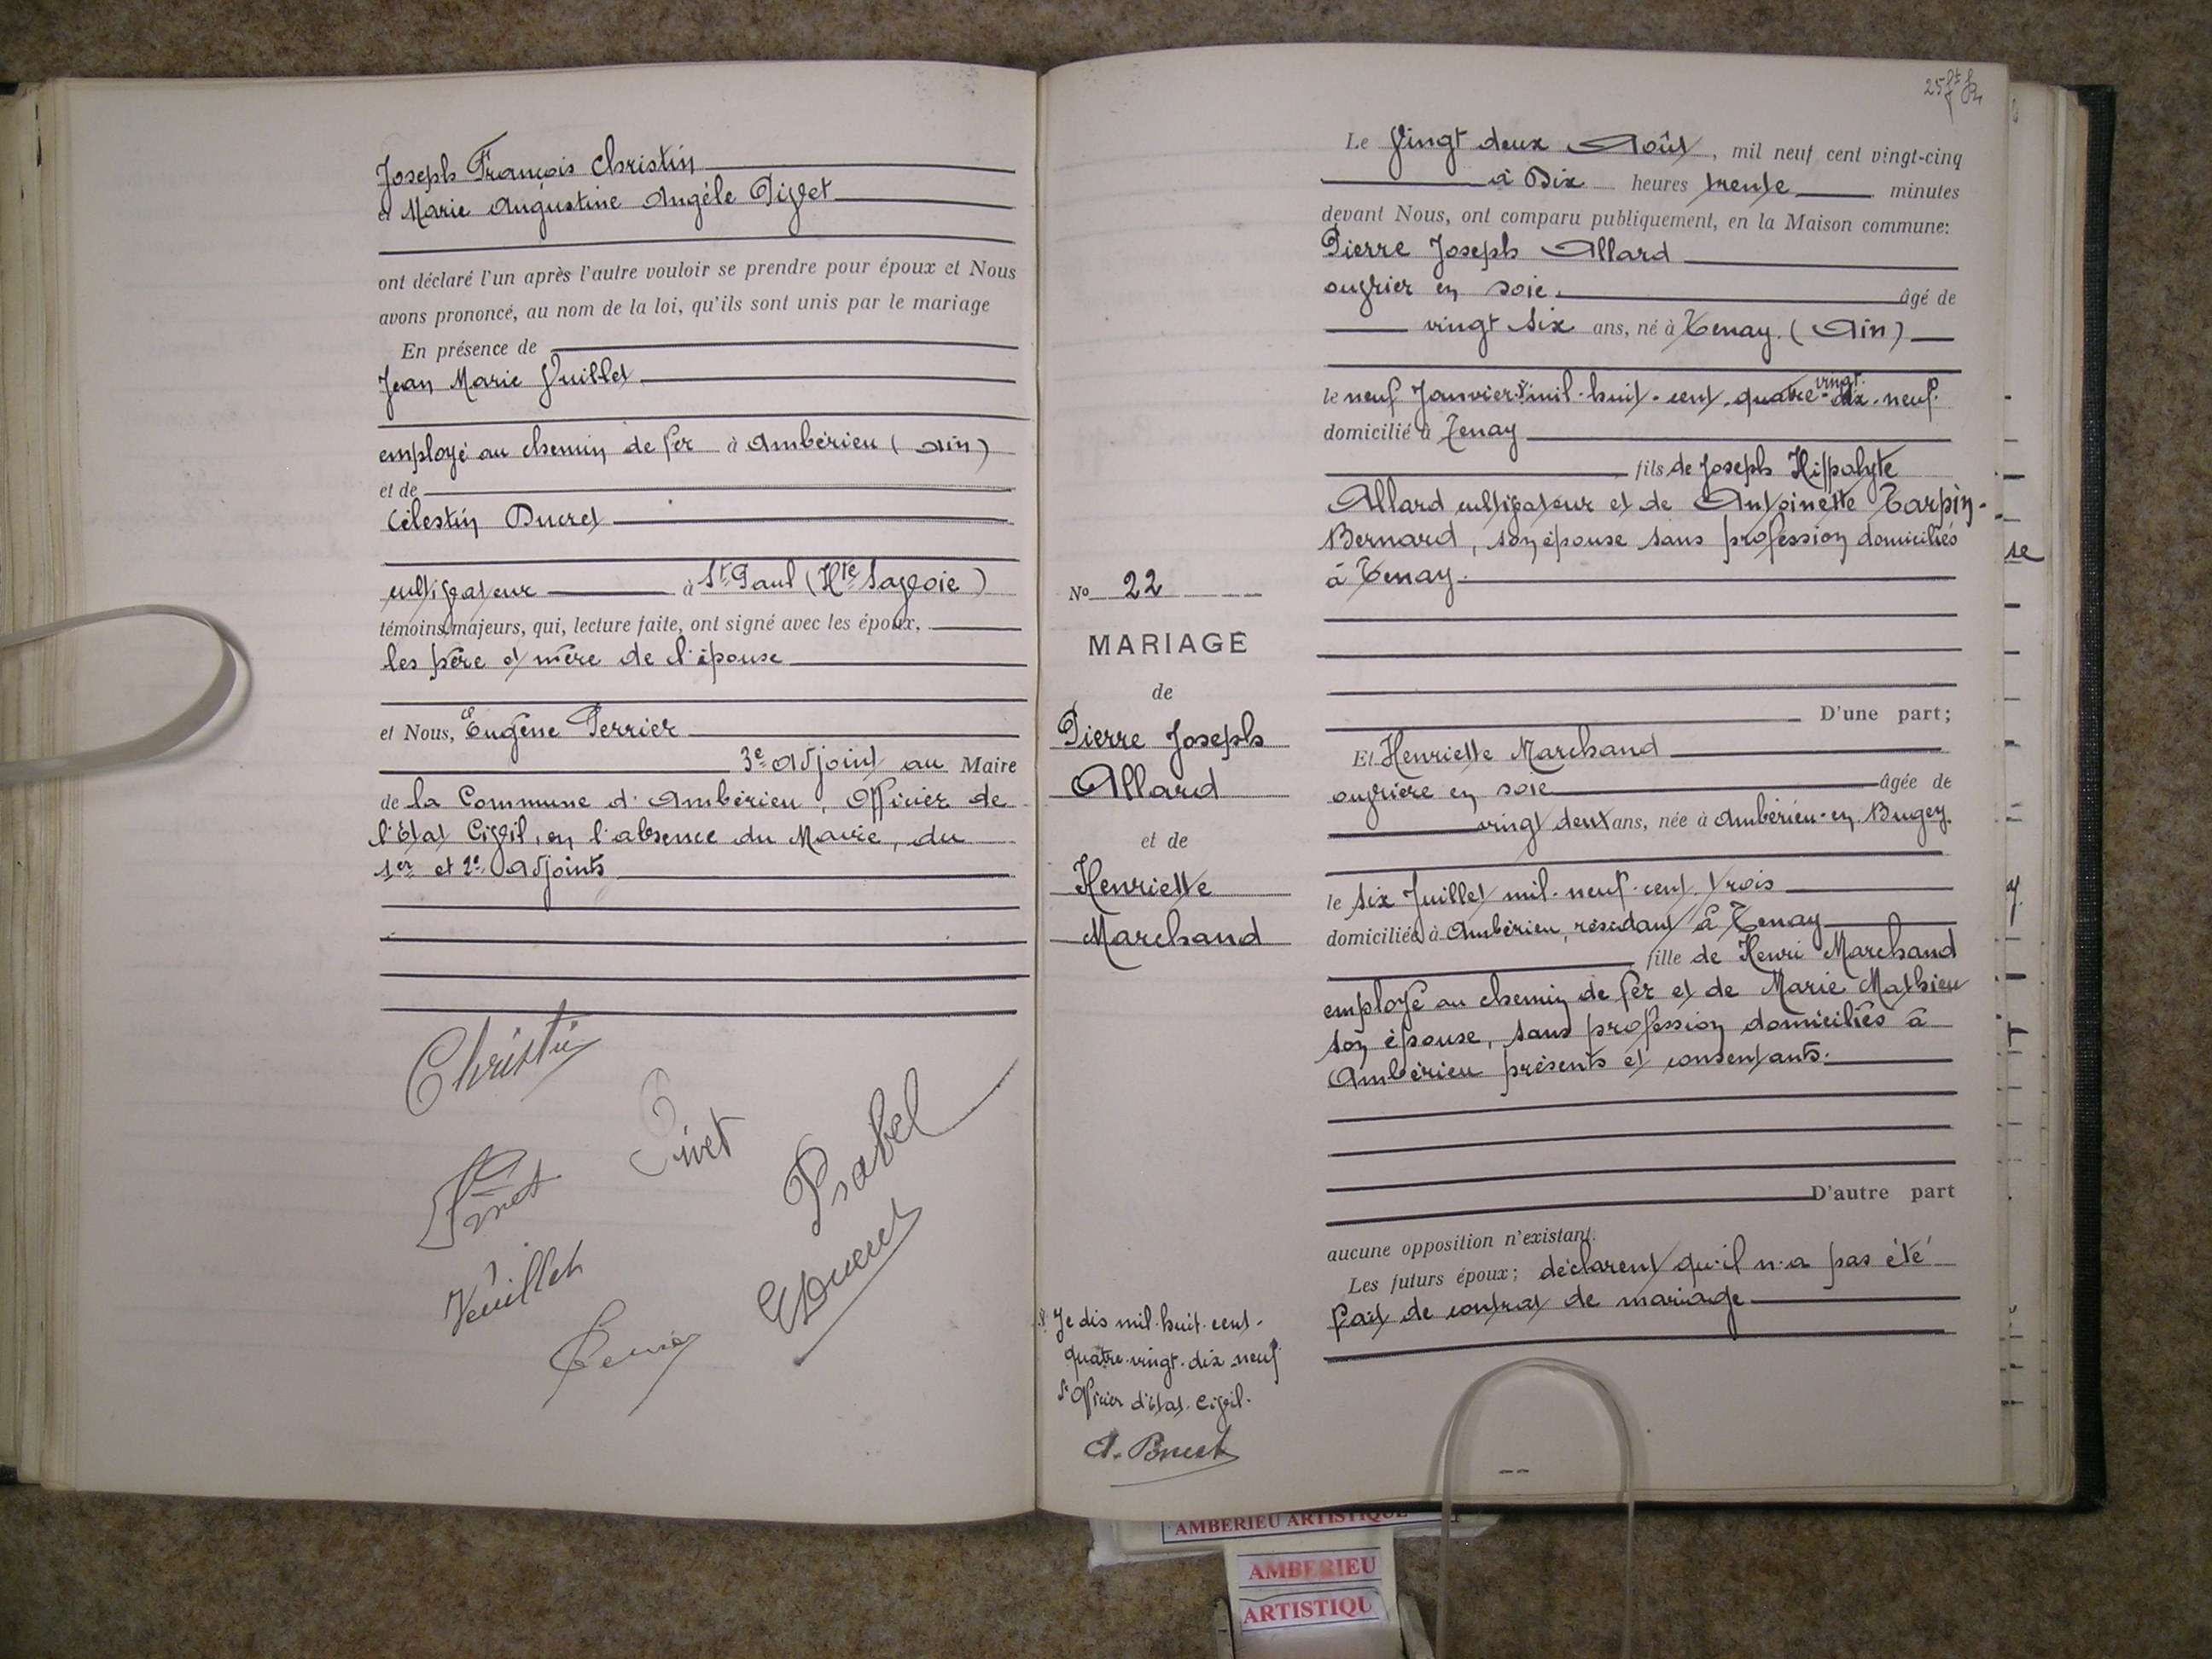 Joseph François Christin
et Marie Augustine Angèle Pivet
ont déclaré l'un après l'autre vouloir se prendre pour époux et Nous
avons prononcé, au nom de la loi, qu'ils sont unis par le mariage
En présence de
Jean Marie Vuillet
employé au chemin de fer à Ambérieu (Ain)
et de
Célestin Ducret
cultivateur à St Paul (Hte Savoie)
témoins majeurs, qui, lecture faite, ont signé avec les époux,
les père et mère de l'épouse
et Nous, Eugène Perrier
3e adjoint au Maire
de la Commune d'Ambérieu, Officier de
l'Etat Civil, en l'absence du Maire, du
1er et 2e adjoints
Christin
Pivet
Psabel
Pivet
Vuillet
Ducret
25
No 22
MARIAGE
de
Pierre Joseph
Allard
et de
Henriette
Marchand
Le Vingt deux Août, mil neuf cent vingt-cinq
à Dix heures trente minutes
devant Nous, ont comparu publiquement, en la Maison commune:
Pierre Joseph Allard
ouvrier en soie. âgé de
vingt six ans, né à Tenay. (Ain)
le neuf Janvier mil-huit-cent-quatre-vingt-dix-neuf.
domicilié à Tenay
fils de Joseph Hippolyte
Allard cultivateur et de Antoinette Tarpin-
Bernard, son épouse sans profession domiciliés
à Tenay.
D'une part;
Et Henriette Marchand
ouvrière en soie âgée de
vingt deux ans, née à Ambérieu-en-Bugey.
le six Juillet mil-neuf-cent-trois
domiciliée à Ambérieu, résidant à Tenay
fille de Henri Marchand
employé au chemin de fer et de Marie Mathieu
son épouse, sans profession domiciliés à
Ambérieu présents et consentants.
D'autre part
aucune opposition n'existant.
Les futurs époux; déclarent qu'il n'a pas été
fait de contrat de mariage
Je dis mil-huit-cent-
quatre-vingt-dix-neuf
l'Officier d'Etat-Civil.
AMBERIEU ARTISTIQUE
AMBERIEU
ARTISTIQU